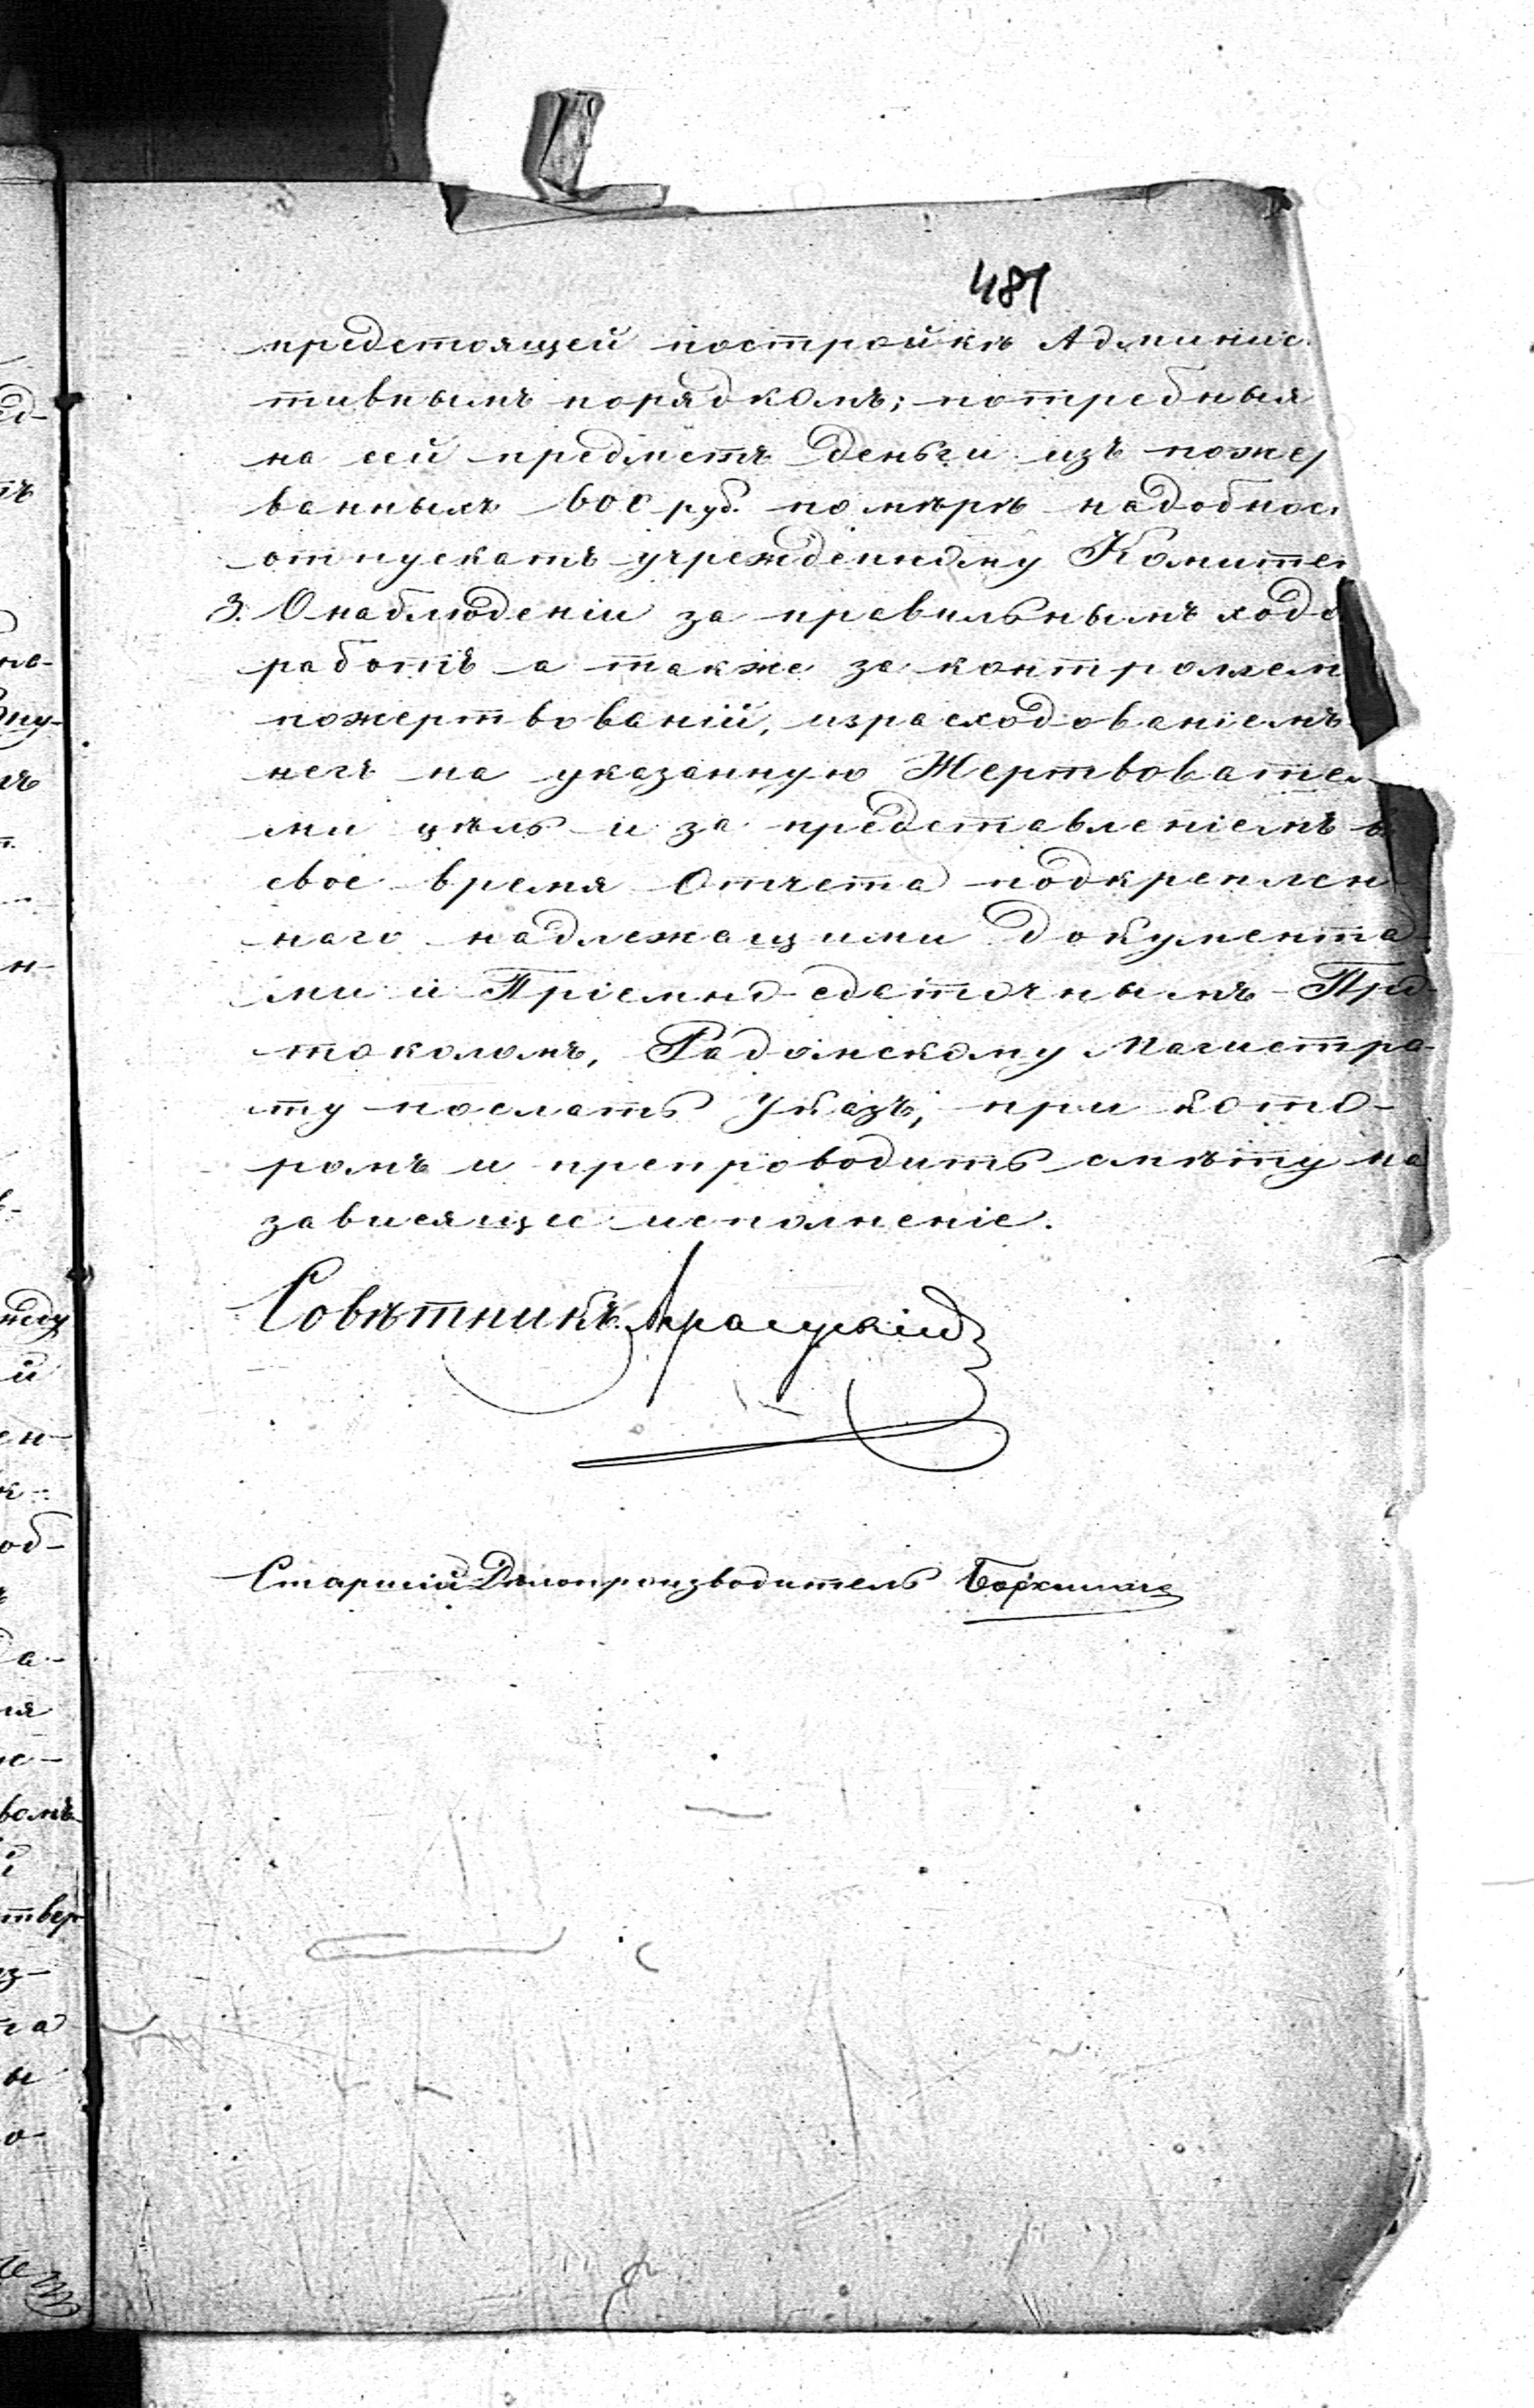 481
предстоящей постройкѣ Админис
тивнымъ порядкомъ; потребныя
на сей предметъ деньги изъ пожер
ванныхъ 600 руб. по мѣрѣ надобнос
отпускать учрежденному Комите
3. О наблюденіи за правильнымъ ходо
работъ а также за контролем
пожертвованій, израсходованіемъ
негъ на указанную Жертвовате
ми цѣль и за представленіемъ в
свое время Отчета подкреплен
наго надлежащими документа-
ми и Пріемно-сдаточнымъ Про-
токоломъ, Радомскому Магистра-
ту послать Указъ, при кото-
ромъ и препроводить смѣту на
зависящее исполненіе.
Совѣтникъ
Старшій Дѣлопроизводитель